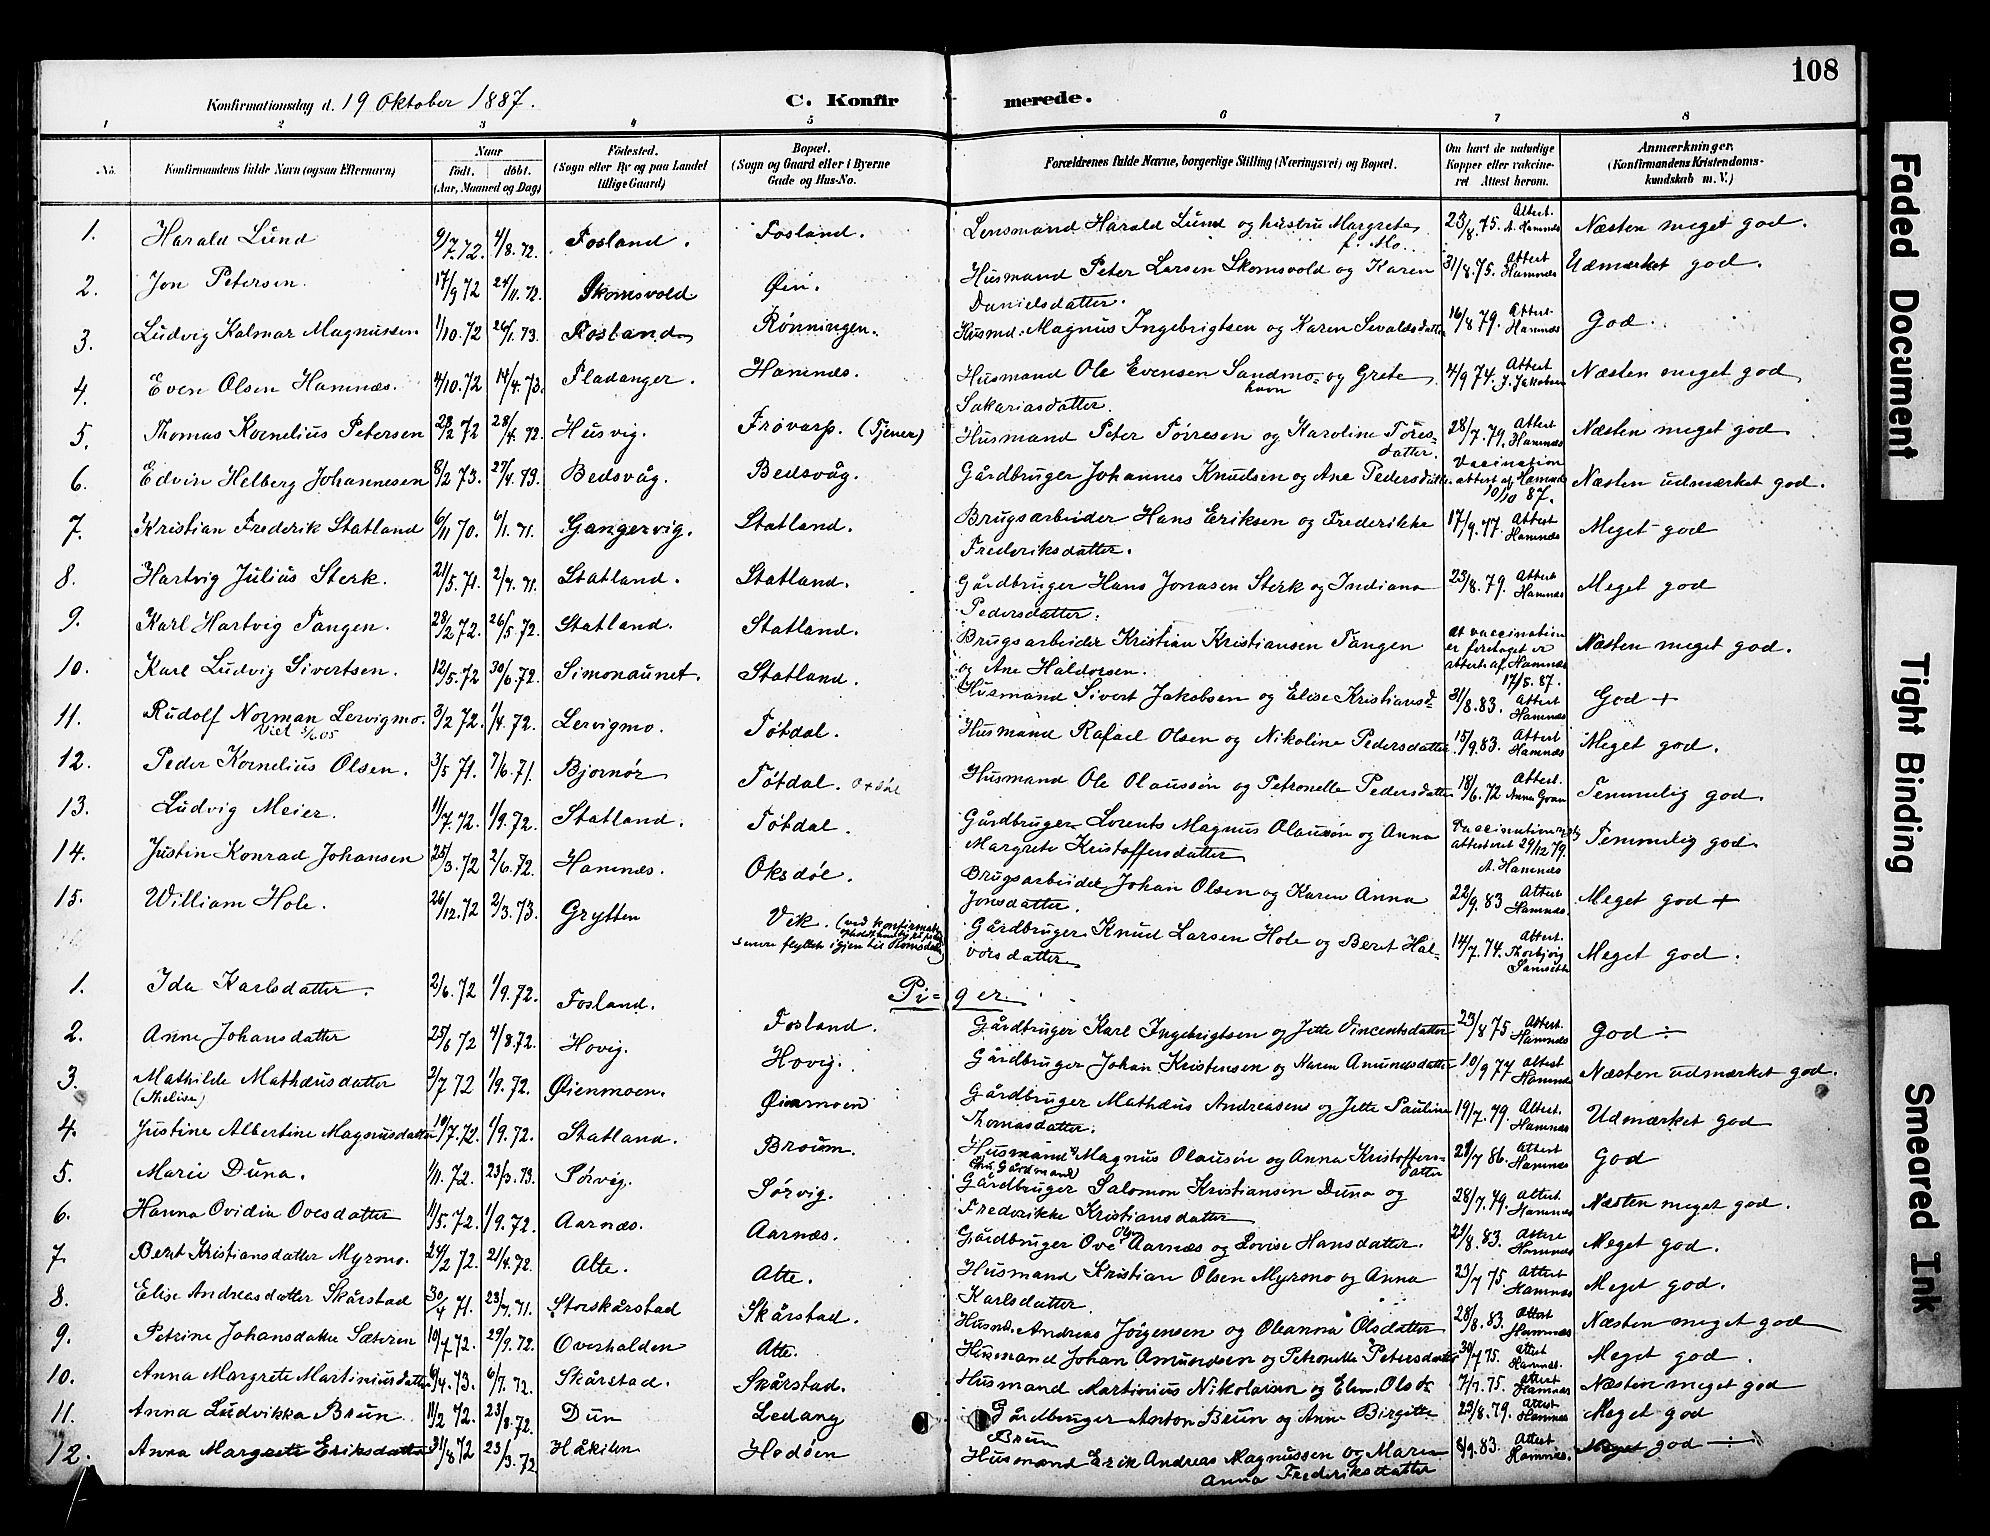 108
Konfirmationsdag d. 19 Oktober 1887.
C. Konfirmerede.
1 2 3 4 5 6 7 8
No.
Konfirmandens fulde Navn (ogsaa Efternavn)
Naar
födt. döbt.
(Aar, Maaned og Dag)
Födested.
(Sogn eller By og paa Landet
tillige Gaard)
Bopæl.
(Sogn og Gaard eller i Byerne
Gade og Hus-No.
Forældrenes fulde Navne, borgerlige Stilling (Næringsvei) og Bopæl.
Om havt de naturlige
Kopper eller vakcine-
ret Attest herom.
Anmærkninger.
(Konfirmandens Kristendoms-
kundskab m. V.)
1. Harald Lund 9/7.72. 4/8.72. Fosland. Fosland. Lensmand Harald Lund og hustru Margrete f. Mo. 23/8.75. Attest. A. Hamnæs Næsten meget god.
2. Jon Petersen. 17/9 72 24/11.72. Skomsvold Øin. Husmand Peter Larsen Skomsvold og Karen Danielsdatter. 31/8.75. Attest Hamnæs Udmærket god.
3. Ludvig Kalmar Magnussen 1/10.72 26/1.73. Fosland Rønningen. Husmd. Magnus Ingebrigtsen og Karen Sevaldsdatter 16/8.79. Attest Hamnæs God.
4. Even Olsen Hamnæs. 4/10.72 14/4.73. Fladanger. Hamnæs. Husmand Ole Evensen Sandmo- og Grete Sakariasdatter. havn 4/9 74. Attest J. Jakobsen Næsten meget god
5. Thomas Kornelius Petersen 28/2 72 28/4.72. Husvig. Frøvarp. (Tjener) Husmand Peter Tørresen og Karoline Tøres- datter. 28/7.79. Attest Hamnæs Næsten meget god
6. Edvin Helberg Johannesen 8/2 73. 27/4.73. Bedsvåg. Bedsvåg. Gårdbruger Johannes Knudsen og Ane Pedersdatter. Vaccination attest af Hamnæs 10/10 87. Næsten udmærket god.
7. Kristian Frederik Statland 6/11 70. 6/1.71. Gangervig. Statland. Brugsarbeider Hans Eriksen og Frederikke Frederiksdatter. 17/9.77. Attest Hamnæs Meget god
8. Hartvig Julius Sterk. 21/5.71. 2/7.71. Statland. Statland. Gårdbruger Hans Jonasen Sterk og Indiana Pedersdatter. 23/8.79. Attest Hamnæs Meget god
9. Karl Hartvig Tangen. 28/2 72. 26/5.72. Statland. Statland. Brugsarbeider Kristian Kristiansen Tangen og Ane Haldorsen. At vaccination er foretaget er attest af Hamnæs 17/5.87. Næsten meget god.
10. Karl Ludvig Sivertsen. 12/5.72 30/6.72. Simonaunet. Statland. Husmand Sivert Jakobsen og Elise Kristiansd- 31/8.83. Attest Hamnæs God +
11. Rudolf Norman Lervigmo. Viet 05 3/2 72. 1/4.72. Lervigmo. Tøtdal. Husmand Rafael Olsen og Nikoline Pedersdatter 15/9.83. Attest Hamnæs Meget god.
12. Peder Kornelius Olsen. 3/5 71. 7/6.71. Bjørnør Tøtdal. Husmand Ole Olaussøn og Petronelle Pedersdatter 18/6.72 Attest. Anna Temmelig god.
13. Ludvig Meier. 11/7.72. 1/9.72. Statland. Tøtdal. Gårdbruger Lorents Magnus Olaussøn og Anna Margrete Kristoffersdatter attesteret 29/12 79. A. Hamnæs Temmelig god.
14. Justin Konrad Johansen 25/3.72 2/6.72. Hamnæs. Oksdøl. Brugsarbeider Johan Olsen og Karen Anna Jonsdatter. 22/9.83 Attest Hamnæs. Meget god +
15. William Hole. 26/12.72 2/3.73. Grytten Vik. (ved konfirmat. senere flyttet igjen til Romsdal) Gårdbruger Knud Larsen Hole og Beret Hal- vorsdatter 14/7.74. Attest. Thorbjørg Meget god.
Pi- ger.
1. Ida Karlsdatter. 2/6.72 1/9.72. Fosland. Fosland. Gårdbruger Karl Ingebrigtsen og Jette Vincentsdatter 23/8 75. Attest. Hamnæs God ÷
2. Anne Johansdatter 25/6 72 4/8.72. Hovig. Hovig. Gårdbruger Johan Kristensen og Karen Amundsdatter 10/9 77 Attest Hamnæs Næsten udmærket god.
3. Mathilde Mathæusdatter 2/7 72 1/9.72. Øienmoen. Øienmoen Gårdbruger Mathæus Andreasen og Jette Pauline Thomasdatter. 19/7.79. Attest. Hamnæs Udmærket god
4. Justine Albertine Magnusdatter 10/7.72. 1/9.72. Statland. Broum. Husmand Magnus Olaussøn og Anna Kristoffers- datter 28/7 86. Attest Hamnæs God
5. Marie Duna. 1/11.72. 23/3.73. Sørvig. Sørvig. Gårdbruger Salomon Kristiansen Duna og Frederikke Kristiansdatter 28/7.79. Attest Hamnæs Næsten meget god.
6. Hanna Ovidia Ovesdatter 11/5.72. 1/9.72. Aarnæs. Aarnæs. Gårdbruger Ove Aarnæs og Lovise Hansdatter. 21/8.83. Attest Hamnæs Meget god.
7. Beret Kristiansdatter Myrmo. 24/2 72. 21/4.72. Alte. Alte. Husmand Kristian Olsen Myrmo og Anna Karlsdatter. 23/7 75. Attest Hamnæs Meget god.
8. Elise Andreasdatter Skårstad 30/4 71. 23/7.71. Storskårstad Skårstad. Husmd. Andreas Jörgensen og Oleanna Olsdatter 28/8.83. Attest Hamnæs Næsten meget god
9. Petrine Johansdatter Sæteren 10/7 72. 29/9.72. Overhalden Alte. Husmand Johan Amundsen og Petronelle Petersdatter 30/7 75. Attest Hamnæs. Meget god.
10. Anna Margrete Martiniusdatter 6/4.73. 6/7.72. Skårstad. Skårstad. Husmand Martinius Nikolaisen og Elen Olsdr. 7/7.75. Attest Hamnæs Næsten meget god
11. Anna Ludvikka Brun 11/2 72. 23/8.72. Dun Ledang Gårdbruger Anton Brun og Anne Birgitte Brun 23/8.79. Attest Hamnæs Meget god
12. Anna Margrete Eriksdatter 31/8 72 23/3.72 Håkilen Hodøen Husmand Erik Andreas Magnussen og Maren Anna Frederiksdatter 8/9.83. Attest Hamnæs. Meget god ÷
Faded Document
Tight Binding
Smeared Ink